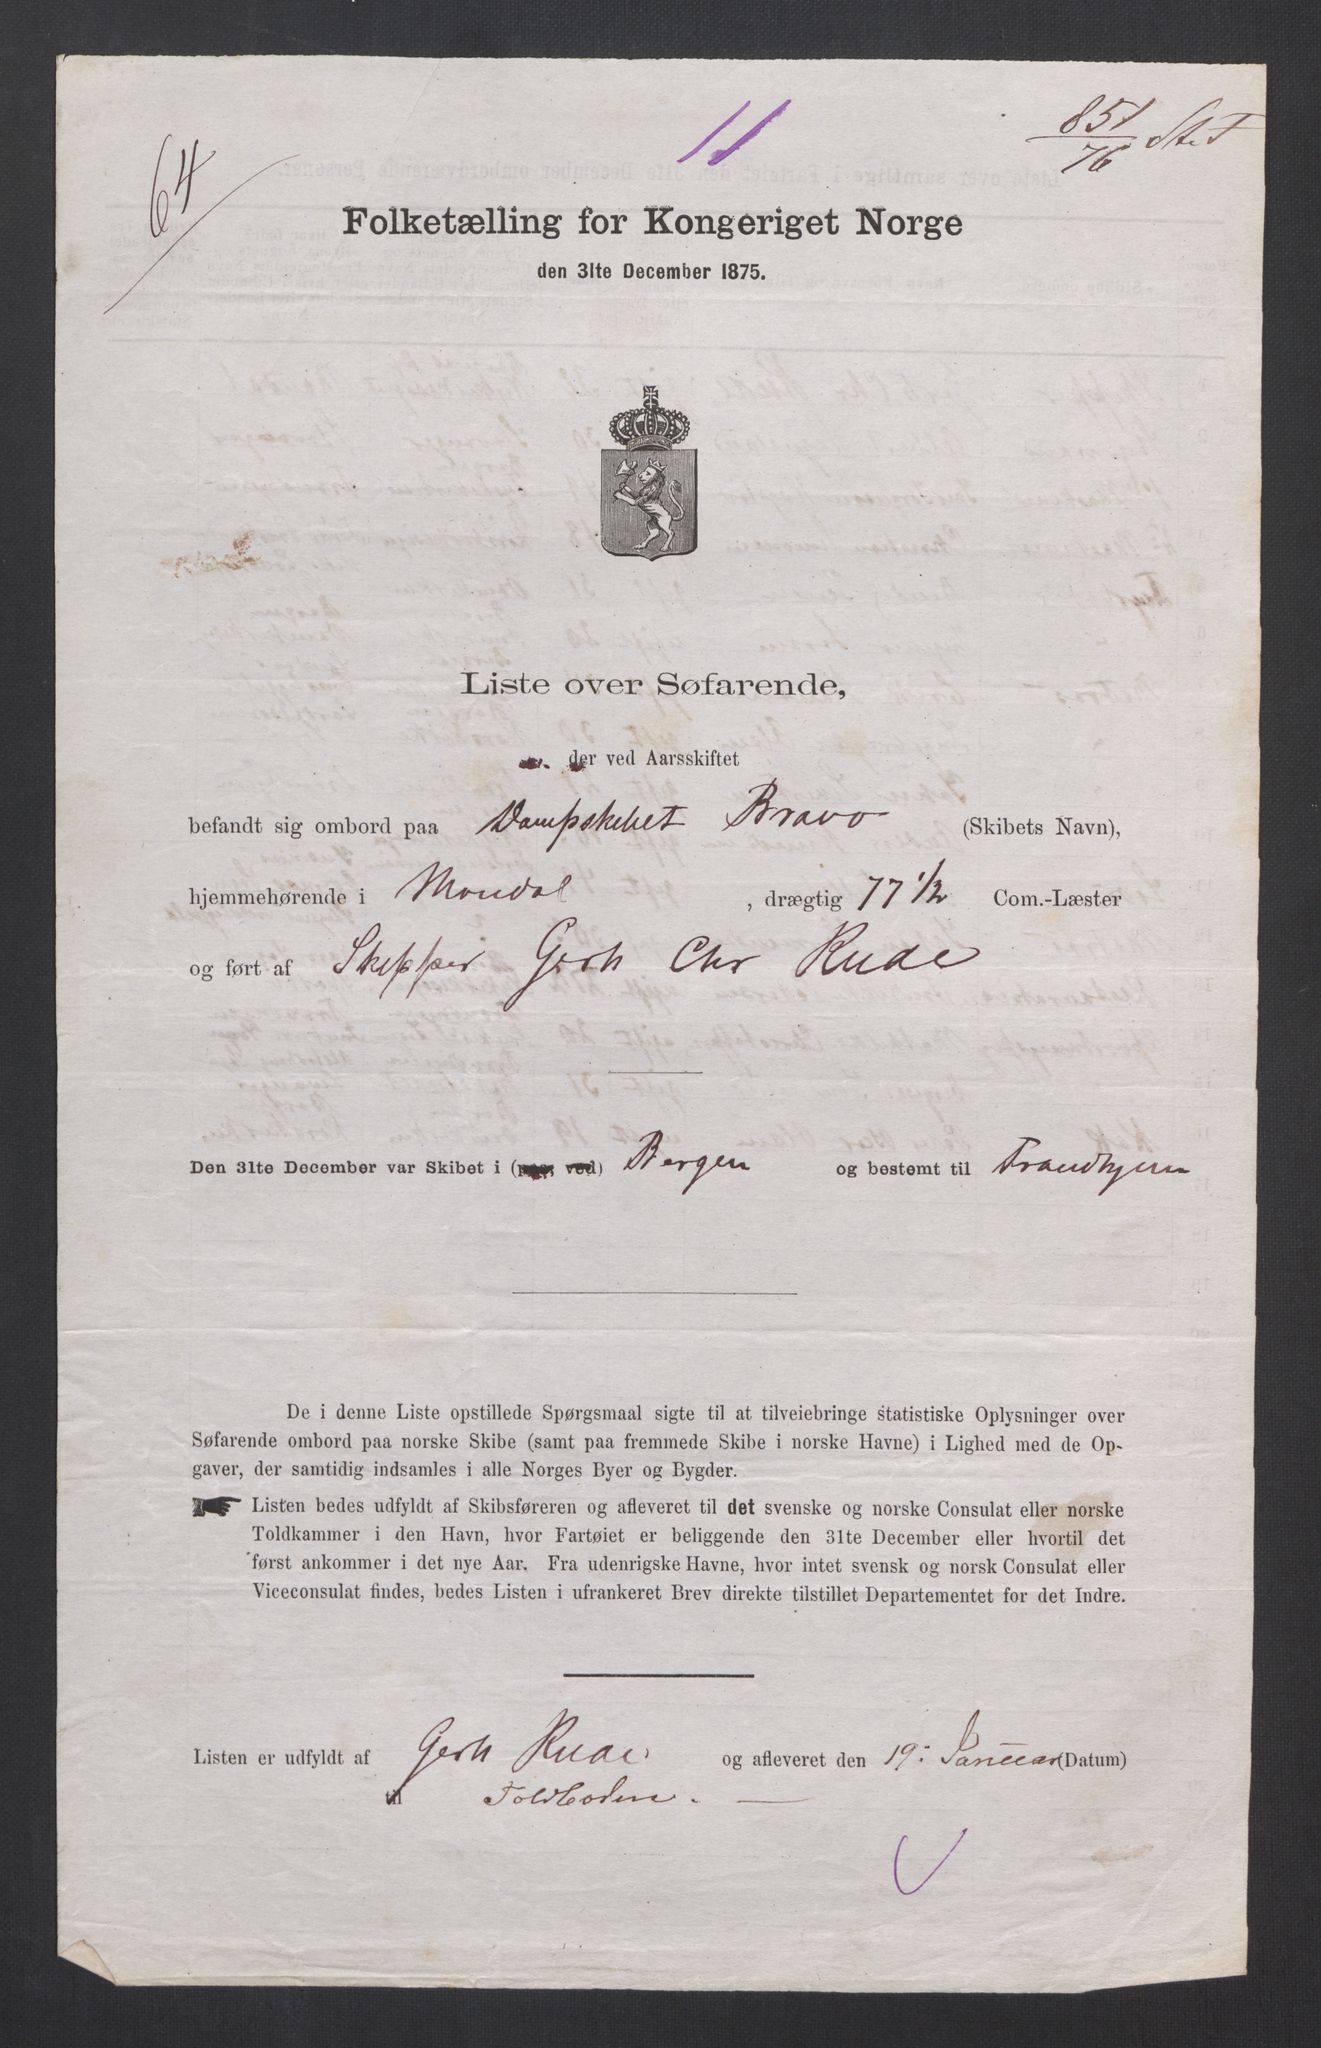 64
11
851
76 St. T
Folketælling for Kongeriget Norge
den 31te December 1875.
Liste over Søfarende,
der ved Aarsskiftet
befandt sig ombord paa Dampskibet Bravo (Skibets Navn),
hjemmehørende i Mandal, drægtig 77 1/2 Com.-Læster
og ført af Skipper Gerh Chr Rude
Den 31te December var Skibet i (paa, ved) Bergen og bestemt til Trondhjem
De i denne Liste opstillede Spørgsmaal sigte til at tilveiebringe statistiske Oplysninger over
Søfarende ombord paa norske Skibe (samt paa fremmede Skibe i norske Havne) i Lighed med de Op-
gaver, der samtidig indsamles i alle Norges Byer og Bygder.
Listen bedes udfyldt af Skibsføreren og afleveret til det svenske og norske Consulat eller norske
Toldkammer i den Havn, hvor Fartøiet er beliggende den 31te December eller hvortil det
først ankommer i det nye Aar. Fra udenrigske Havne, hvor intet svensk og norsk Consulat eller
Viceconsulat findes, bedes Listen i ufrankeret Brev direkte tilstillet Departementet for det Indre.
Listen er udfyldt af Gerh Rude og afleveret den 19: Januar (Datum)
til Toldboden.